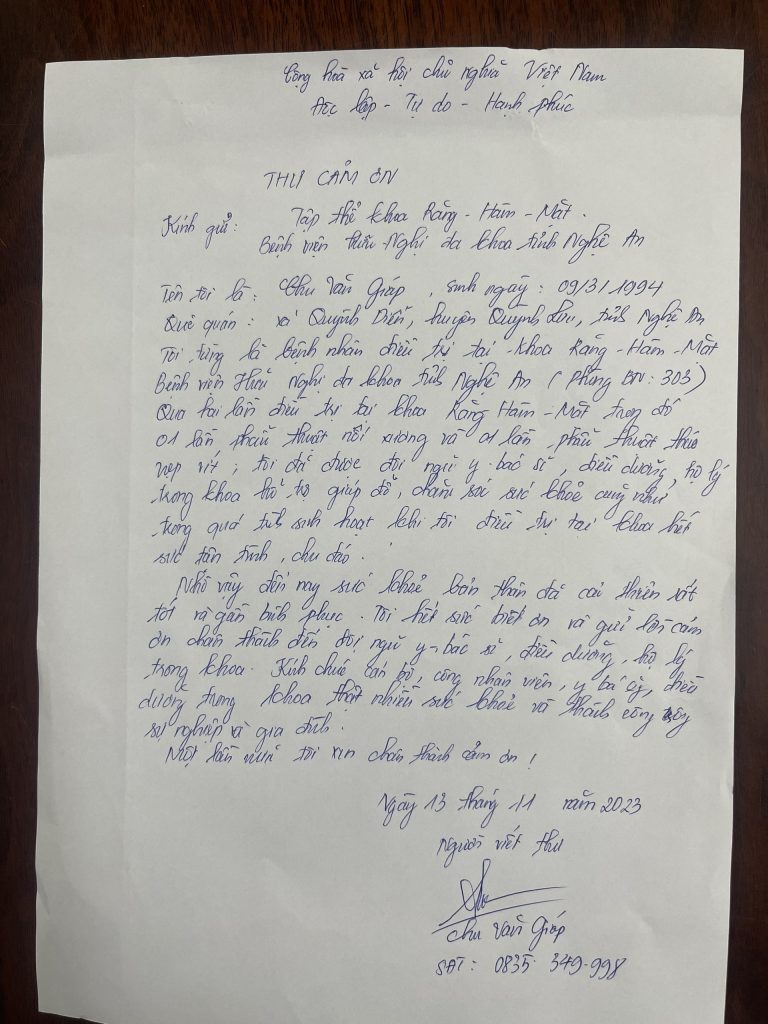 Cộng hoà xã hội chủ nghĩa Việt Nam
Độc lập - Tự do - Hạnh phúc
THƯ CẢM ƠN
Kính gửi: Tập thể khoa Răng - Hàm - Mặt.
Bệnh viện Hữu Nghị đa khoa tỉnh Nghệ An
Tên tôi là: Chu Văn Giáp, sinh ngày: 09/3/1994
Quê quán: xã Quỳnh Diễn, huyện Quỳnh Lưu, tỉnh Nghệ An
Tôi từng là bệnh nhân điều trị tại khoa Răng - Hàm - Mặt
Bệnh viện Hữu Nghị đa khoa tỉnh Nghệ An (Phòng BN: 303)
Qua hai lần điều trị tại khoa Răng Hàm - Mặt trong đó
01 lần phẫu thuật nối xương và 01 lần phẫu thuật tháo
nẹp vít; tôi đã được đội ngũ y - bác sĩ, điều dưỡng, hộ lý
trong khoa hỗ trợ giúp đỡ, chăm sóc sức khoẻ cũng như
trong quá trình sinh hoạt khi tôi điều trị tại khoa hết
sức tận tình, chu đáo.
Nhờ vậy đến nay sức khoẻ bản thân đã cải thiện rất
tốt và gần bình phục. Tôi hết sức biết ơn và gửi lời cám
ơn chân thành đến đội ngũ y - bác sĩ, điều dưỡng, hộ lý
trong khoa. Kính chúc cán bộ, công nhân viên, y bác sỹ, điều
dưỡng trong khoa thật nhiều sức khoẻ và thành công trong
sự nghiệp và gia đình.
Một lần nữa tôi xin chân thành cảm ơn!
Ngày 13 tháng 11 năm 2023
Người viết thư
Chu Văn Giáp
SĐT: 0835.349.998